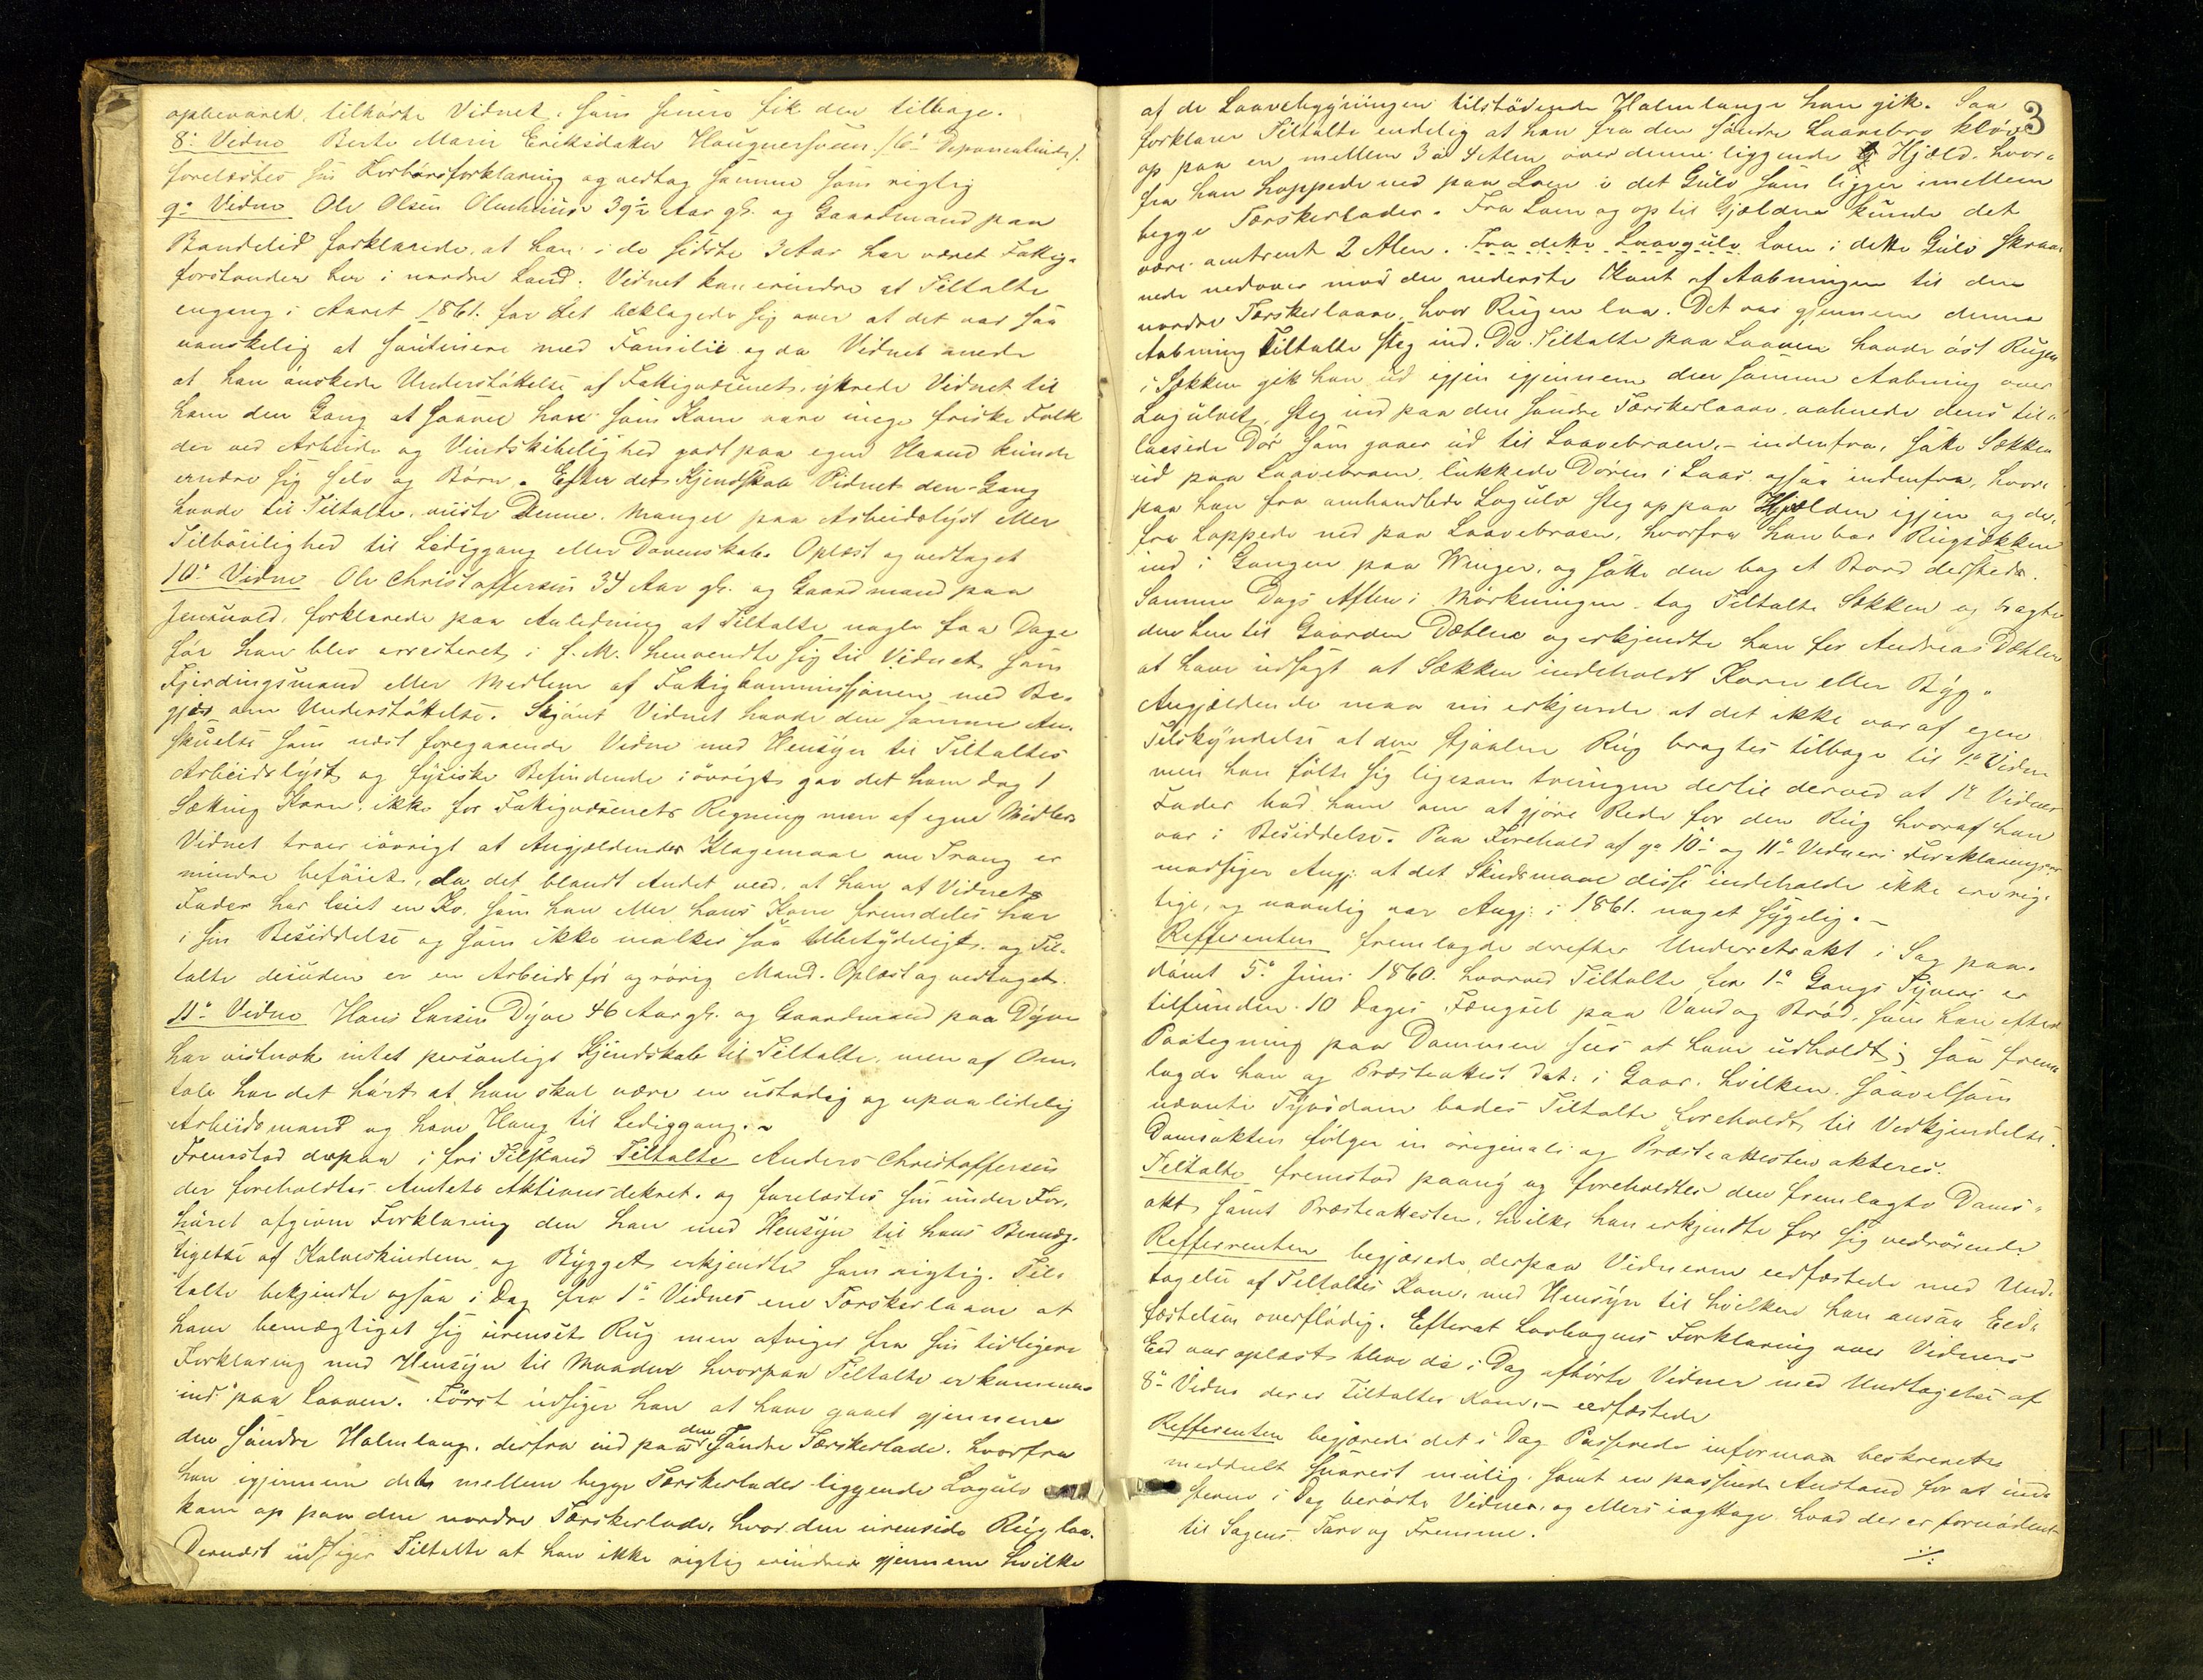 opbevaret, tilhørte Vidnet, som senere fik den tilbage.
8de Vidne Berte Marie Eriksdatter Haugnersveen /: 6te Deponentinde :/
forelæstes sin Forhørsforklaring og vedtog samme som rigtig
9de Vidne Ole Olsen 39½ Aar gl. og Gaardmand paa
Bandelid forklarede, at han i de sidste 3 Aar har været Fattig-
forstander her i nordre Land. Vidnet kan erindre at Tiltalte
engang i Aaret 1861 for det beklagede sig over at det var saa
vanskelig at soutinere med Familie og da Vidnet anede
at han ønskede Understøttelse af Fattigvæsenet, ytrede Vidnet til
ham den Gang at saavel han som Kone vare unge friske Folk
der ved Arbeide og Vindskibelighed godt paa egen Haand kunde
ernære sig selv og Børn. Efter det Kjendskab Vidnet den Gang
havde til Tiltalte, viiste Denne Mangel paa Arbeidslyst eller
Tilbøielighed til Lediggang eller Dovenskab. Oplæst og vedtaget
10de Vidne Ole Christoffersen 34 Aar gl. og Gaardmand paa
Jensvold, forklarede paa Anledning at Tiltalte nogle faa Dage
før han blev arresteret i f. M. henvendte sig til Vidnet som
Fjerdingsmand eller Medlem af Fattigkommissionen med Be-
gjær om Understøttelse. Skjønt Vidnet havde den samme An-
skuelse som næst foregaaende Vidne med Hensyn til Tiltaltes
Arbeidslyst og fysiske Befindende iøvrigt gav det ham dog 1
Sætting Korn, ikke for Fattigvæsenets Regning men af egne Midler
Vidnet troer iøvrigt at Angjældendes Klagemaal om Trang er
mindre beføiet, da det blandt Andet veed, at han af Vidnets
Fader har leiet en Ko, som han eller hans Kone fremdeles har
i sin Besiddelse og som ikke malker saa Ubetydeligt, og Til-
talte desuden er en Arbeidsfør og rørig Mand. Oplæst og vedtaget.
11te Vidne Hans Larsen Dyve 46 Aar gl. og Gaardmand paa Dyve
har vistnok intet personligt Kjendskab til Tiltalte, men af Om-
tale har det hørt at han skal være en ustadig og upaalidelig
Arbeidsmand og have Hang til Lediggang.
Fremstod derpaa i fri Tilstand Tiltalte Anders Christoffersen
der foreholdtes Amtets Aktionsdekret, og forelæstes sin under For-
høret afgivne Forklaring den han med Hensyn til hans Bemæg-
tigelse af Kalveskindene og Bygget erkjendte som rigtig. Til-
talte bekjendte ogsaa i Dag fra 1ste Vidnes ene Tærskerlaave at
have bemægtiget sig urenset Rug men afviger fra sin tidligere
Forklaring med Hensyn til Maaden hvorpaa Tiltalte er kommen
ind paa Laaven. Først udsiger han at have gaaet gjennem
den søndre Halmlang, derfra ind paa den søndre Tærskerlade, hvorfra
han igjennem det mellem begge Tærskerlader liggende Logulv
kom op paa den nordre Tærskerlade, hvor den urensede Rug laa.
Dernæst udsiger Tiltalte at han ikke rigtig erindrer gjennem hvilke
3
af de Laavebygningen tilstødende Halmlange han gik. Saa
forklarer Tiltalte endelig at han fra den søndre Laavebro kløv
op paa en mellem 3 à 4 Alen over denne liggende Hjeld, hvor-
fra han hoppede ned paa Loen i det Gulv som ligger imellem
begge Tærskerlader. Fra Loen og op til Hjælden kunde det
være omtrent 2 Alen. Fra dette Laavgulv Loen i dette Gulv skraa-
nede nedover mod den nederste Kant af Aabningen til den
nordre Tærskerlaave, hvor Rugen laa. Det var gjennem denne
Aabning Tiltalte steg ind. Da Tiltalte paa Laaven havde øst Rugen
i Sækken gik han ud igjen igjennem den samme Aabning over
Logulvet, steg ind paa den søndre Tærskerlaave, aabnede dens til-
laasede Dør som gaaer ud til Laavebroen,- indenfra, satte Sækken
ud paa Laavebroen, lukkede Døren i Laas ogsaa indenfra, hvor-
paa han fra omhandlede Logulv steg op paa Hjælden igjen og der-
fra hoppede ned paa Laavebroen, hvorfra han bar Rugsækken
ind i Gangen paa Winger, og satte den bag et Bord dersteds.
Samme Dags Aften i Mørkningen tog Tiltalte Sækken og bragte
den hen til Gaarden Dæhlen og erkjendte han for Andreas Dæhlen
at have udsagt at Sækken indeholdt Korn eller Byg.
Angjældende maa nu erkjende at det ikke var af egen
Tilskyndelse at den stjaalne Rug bragtes tilbage til 1ste Vidne
men han følte sig ligesom tvungen dertil derved at 1ste Vidnes
Fader bad ham om at gjøre Rede for den Rug hvoraf han
var i Besiddelse. Paa Forehold af 9de 10de og 11te Vidners Forklaringer
modsiger Angj. at det Skudsmaal disse indeholde ikke ere rig-
tige, og navnlig var Angj. i 1861 noget sygelig.-
Refferenten fremlagde derefter Underretsakt i Sag paa-
dømt 5te Juni 1860 hvorved Tiltalte for 1ste Gangs Tyveri er
tilfunden 10 Dages Fængsel paa Vand og Brød, som han efter
Paategning paa Dommen sees at have udholdt; saa frem-
lagde han og Præsteattest dat: i Gaar, hvilken saavelsom
nævnte Tyvsdom bades Tiltalte foreholdt til Vedkjendelse.
Domsakten følger in originali og Præsteattesten akteres:
Tiltalte fremstod paany og foreholdtes den fremlagte Doms-
akt samt Præsteattesten, hvilke han erkjendte for sig vedrørende
Refferenten begjærede derpaa Vidnerne eedfæstede med Und-
tagelse af Tiltaltes Kone, med Hensyn til hvilken han ansaa Eed-
fæstelsen overflødig. Efterat Lovbogens Forklaring over Vidners
Eed var oplæst, bleve de i Dag afhørte Vidner med Undtagelse af
8de Vidne der er Tiltaltes Kone,- eedfæstede
Refferenten begjærede det i Dag Passerede in forma beskrevet
meddeelt snarest mulig, samt en passende Anstand for at ind-
stevne i Dag berørte Vidner, og ellers iagttage hvad der er fornødent
til Sagens Tarv og Fremme.
./.